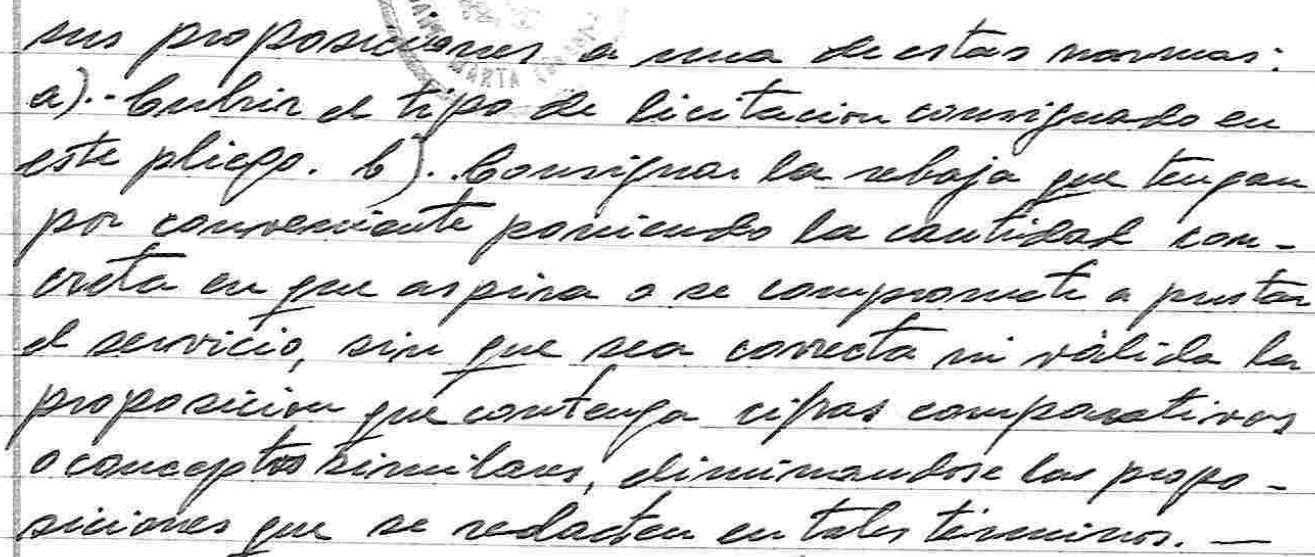 sus proposiciones a una de estas normas:
a).- Cubrir el tipo de licitacion consignado en
este pliego. b).- Consignar la rebaja que tengan
por conveniente poniendo la cantidad con-
creta en que aspira o se compromete a prestar
el servicio, sin que sea correcta ni válida la
proposicion que contenga cifras comparativas
o conceptos similares, eliminandose las propo-
siciones que se redacten en tales términos. —
MARTA